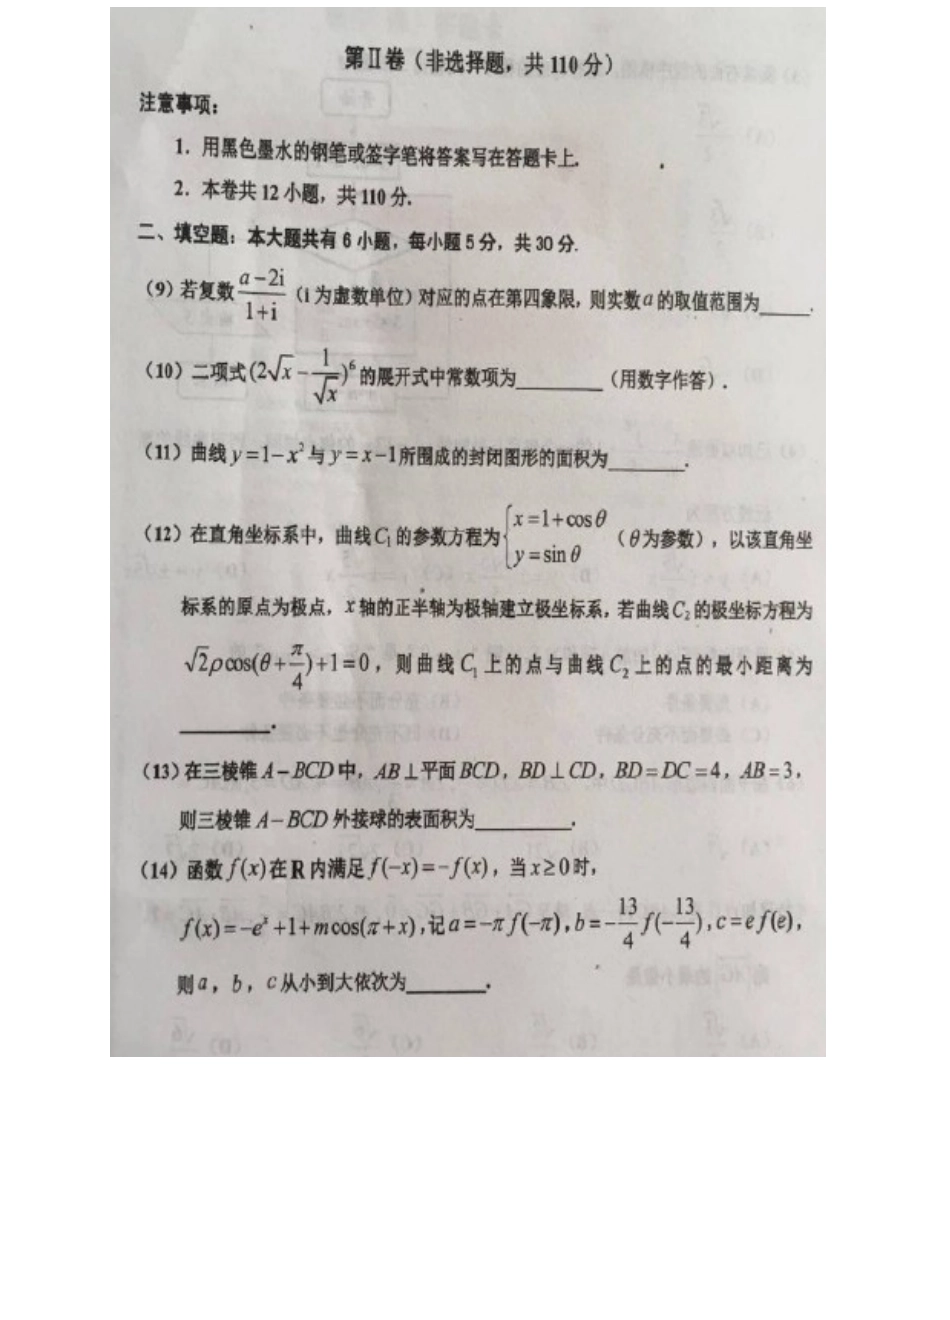 第Ⅱ卷（非选择题，共110分）
注意事项：
1．用黑色墨水的钢笔或签字笔将答案写在答题卡上.
2．本卷共12小题，共110分.
二、填空题：本大题共有6小题，每小题5分，共30分.
（9）若复数$\frac{a-2i}{1+i}$（i为虚数单位）对应的点在第四象限，则实数a的取值范围为______.
（10）二项式$(2\sqrt{x}-\frac{1}{\sqrt{x}})^6$的展开式中常数项为______（用数字作答）.
（11）曲线$y=1-x^2$与$y=x-1$所围成的封闭图形的面积为______.
（12）在直角坐标系中，曲线$C_1$的参数方程为$\begin{cases}x=1+\cos\theta\\y=\sin\theta\end{cases}$（θ为参数），以该直角坐
标系的原点为极点，x轴的正半轴为极轴建立极坐标系，若曲线$C_2$的极坐标方程为
$\sqrt{2}\rho\cos(\theta+\frac{\pi}{4})+1=0$，则曲线$C_1$上的点与曲线$C_2$上的点的最小距离为
______.
（13）在三棱锥A-BCD中，AB⊥平面BCD，BD⊥CD，BD=DC=4，AB=3，
则三棱锥A-BCD外接球的表面积为______.
（14）函数f(x)在R内满足f(-x)=-f(x)，当x≥0时，
$f(x)=-e^x+1+m\cos(\pi+x)$,记$a=-\pi f(-\pi),b=-\frac{13}{4}f(-\frac{13}{4}),c=ef(e)$，
则a，b，c从小到大依次为______.